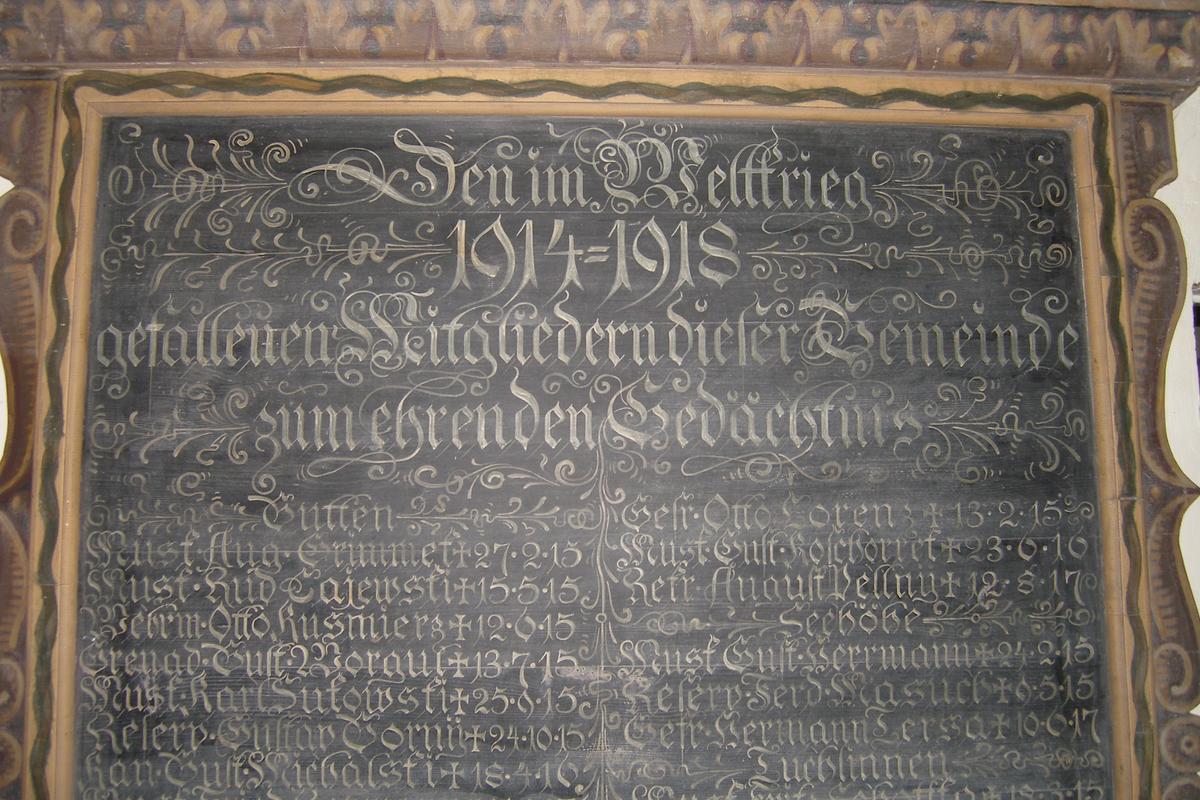 Den im Weltkrieg
1914=1918
gefallenen Mitgliedern dieser Gemeinde
zum ehrenden Gedächtnis
Gutten
Musk. Aug. Grummet + 27.2.15
Musk. Rud. Cajewski + 15.5.15
Wehrm. Otto Kusmierz + 12.6.15
Grenad. Gust. Worgul + 13.7.15
Musk. Karl Sutowski + 25.8.15
Reserv. Gustav Corny + 24.10.15
Kan. Gust. Michalski + 18.4.16
Gefr. Otto Lorenz + 13.2.15
Musk. Gust. Koschorrek + 23.6.16
Refr. August Pellny + 12.8.17
Seehöhe
Musk. Gust. Herrmann + 24.2.15
Reserv. Ferd. Masuch + 6.5.15
Gefr. Hermann Jersa + 10.6.17
Zuchlinnen